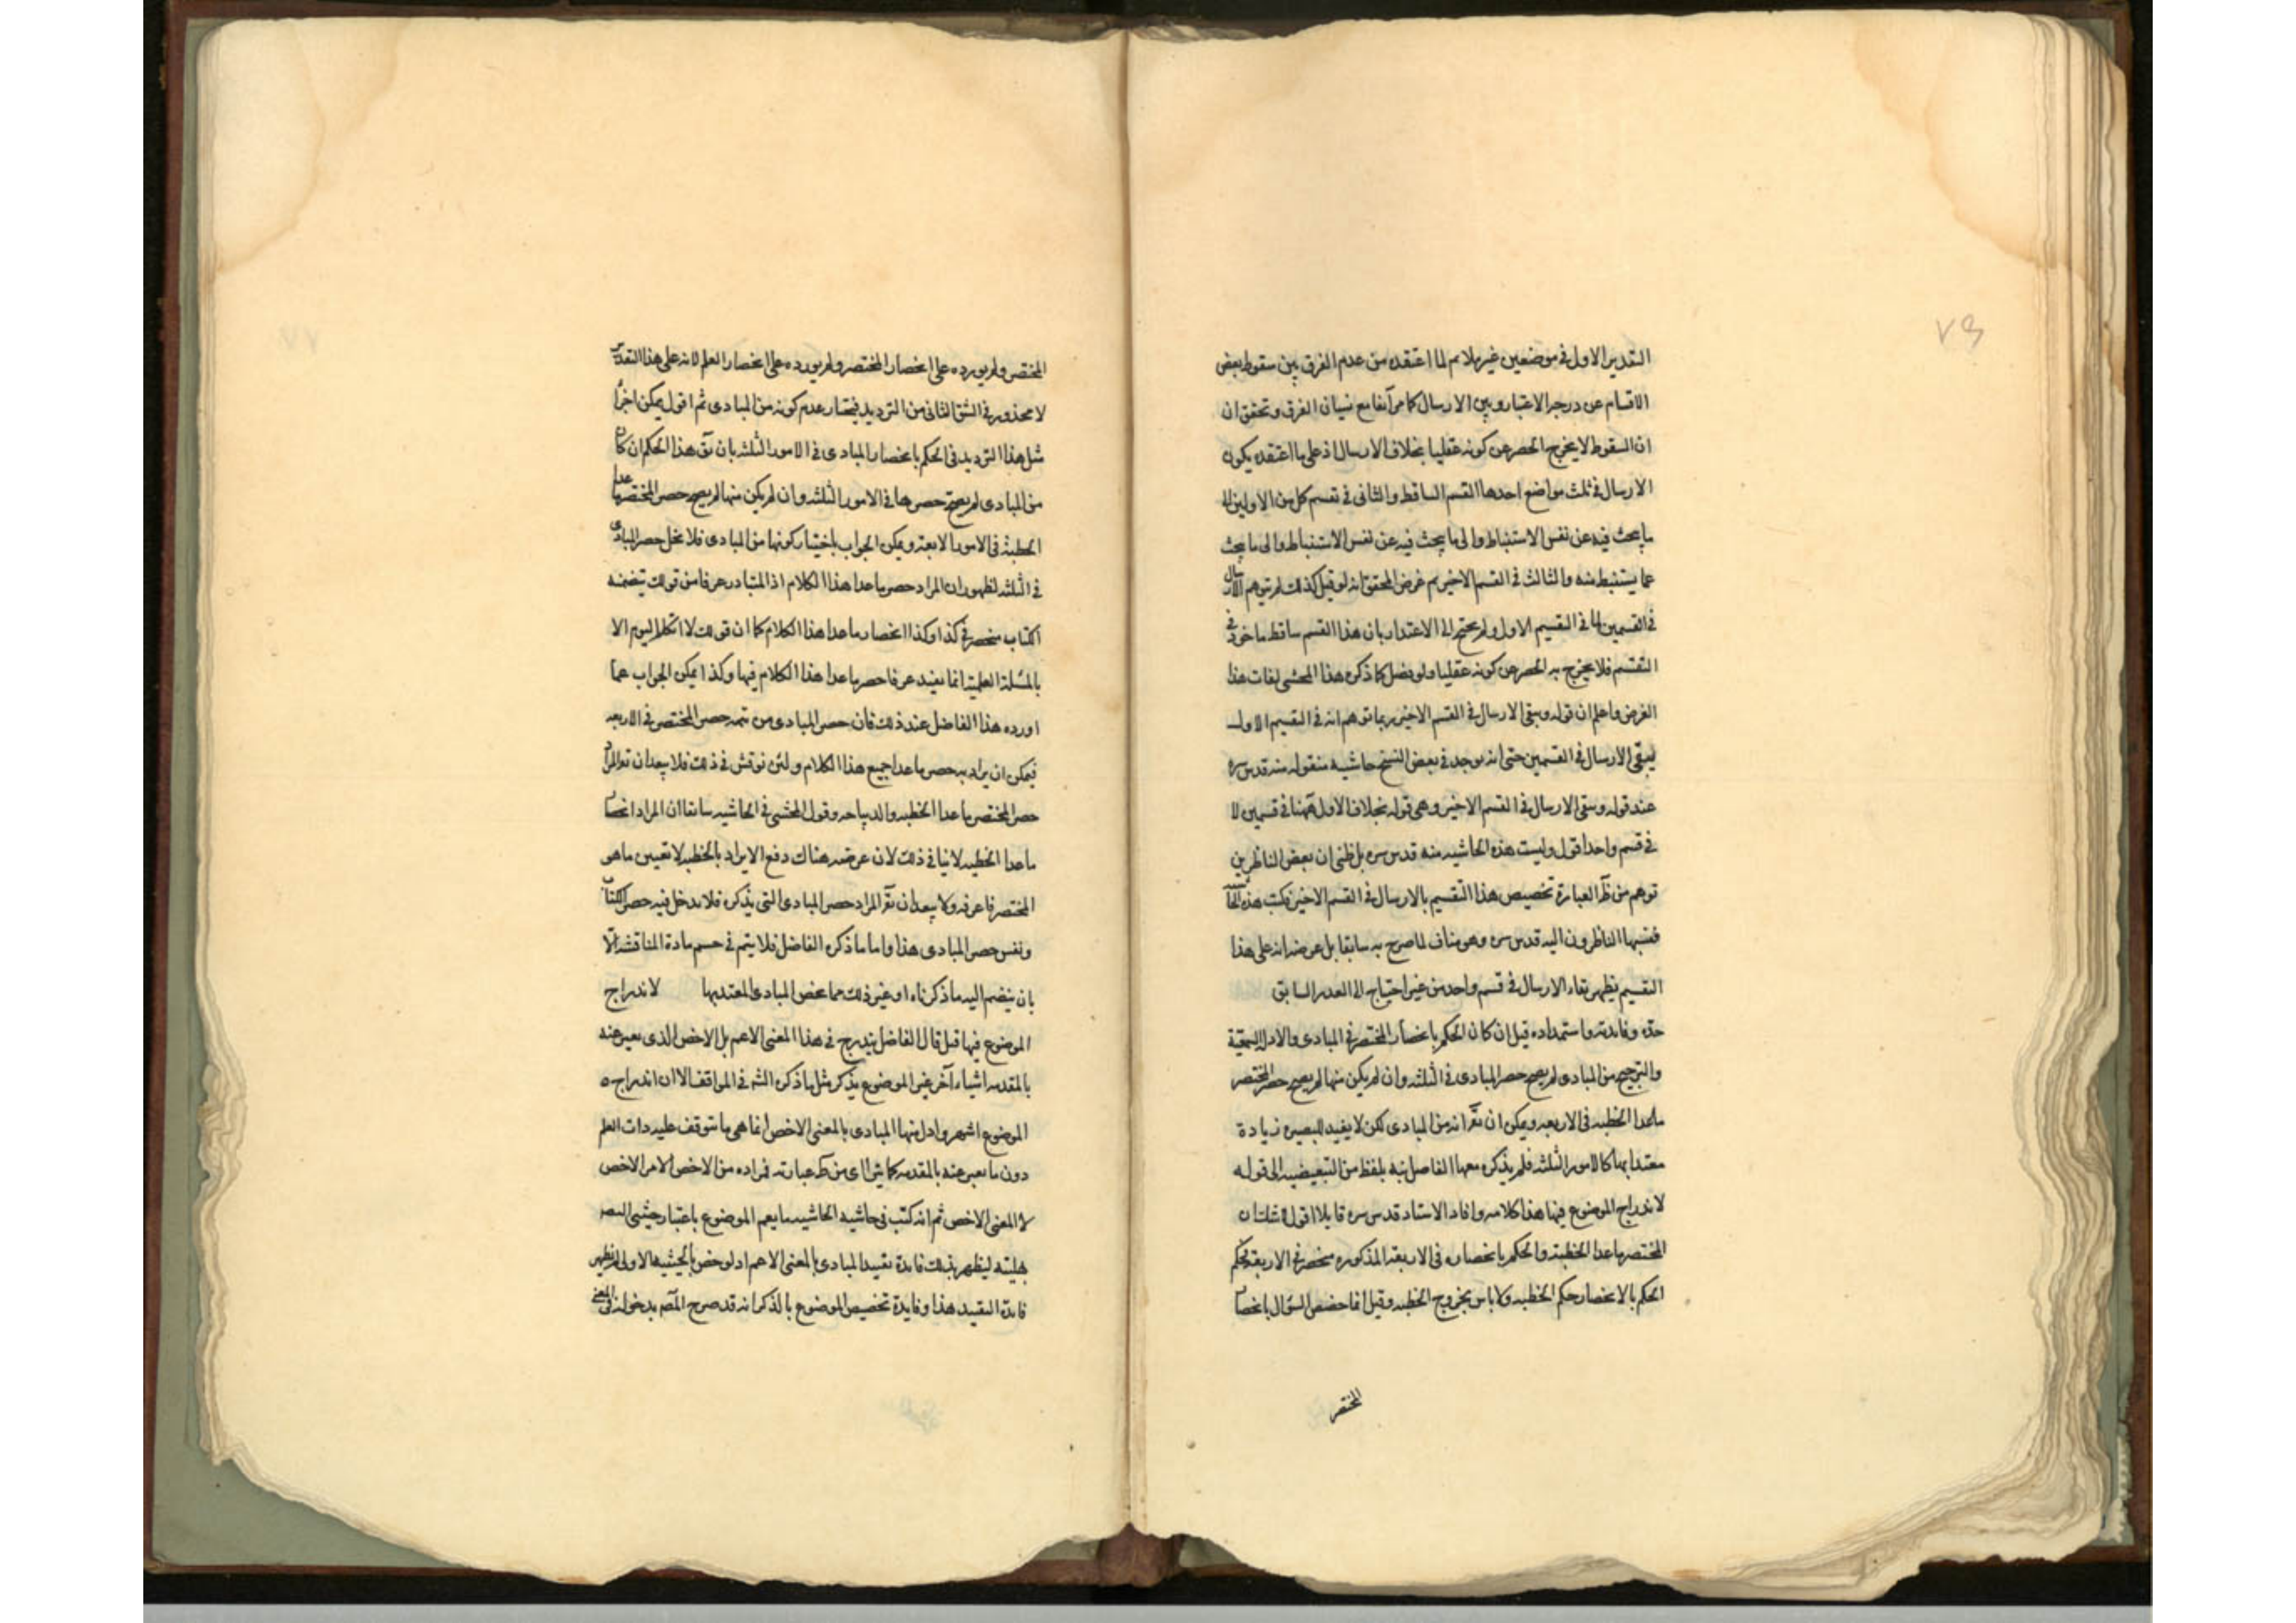 ٧٩
التقدير الاول في موضعين غير ملائم لما اعتقده من عدم الفرق بين سقوط بعض
الاقسام عن درجة الاعتبار وبين الارسال كما مر آنفا مع نسيان الفرق وتحقق ان
ان السقوط لا يخرج الحصر عن كونه عقليا بخلاف الارسال اذ على ما اعتقده يكون
الارسال في ثلث مواضع احدها القسم الساقط والثاني في تقسيم كل من الاولين الى
ما يبحث فيه عن نفس الاستنباط والى ما يبحث فيه عن نفس الاستنباط والى ما يبحث
عما يستنبط منه والثالث في القسم الاخير ثم غرض المحقق انه لو قيل كذلك لم يتوهم الارسال
في القسمين في القسيم الاول ولم يحتج الى الاعتذار بان هذا القسم ساقط ماخوذ في
التقسيم فلا يخرج به الحصر عن كونه عقليا ولو فصل كما ذكره هذا المحشى لفات هذا
الغرض واعلم ان قوله ويبقى الارسال في القسم الاخير ربما توهم انه في التقسيم الاول
يبقى الارسال في القسمين حتى انه يوجد في بعض النسخ حاشيه منقوله منه قدس سره
عند قوله ويبقى الارسال في القسم الاخير وهى قوله بخلاف الاول فهنا في قسمين لا
في قسم واحد اقول وليست هذه الحاشيه منه قدس سره بل ظنى ان بعض الناظرين
توهم من ظ العبارة تخصيص هذا التقسيم بالارسال في القسم الاخير فكتب هذه الحاشية
فنسبها الناظرون اليه قدس سره وهو مناف لما صرح به سابقا بل غرضه انه على هذا
التقسيم يظهر بقاء الارسال في قسم واحد من غير احتياج الى العذر السابق
حده وفائدته واستمداده قيل ان كان الحكم بانحصار المختصر في المبادى والادلة السمعية
والترجيح من المبادى لم يصح حصر المبادى في الثلثه وان لم يكن منها لم يصح حصر المختصر
ماعدا الخطبه في الاربعه ويمكن ان يقر انه من المبادى لكن لا يفيد للبصيره زيادة
معتدا بها كالامور الثلثه فلم يذكره معها الفاضل نبه بلفظ من التبعيضيه الى قوله
لاندراج الموضوع فيها هذا كلامه وافاد الاستاد قدس سره قايلا اقول لا شك ان
المختصر ماعدا الخطبة والحكم بانحصاره في الاربعة المذكوره منحصر في الاربعة فحكم
الحكم بالانحصار حكم الخطبه ولا باس بخروج الخطبه وقيل انما خصص السؤال بانحصار
المختصر
المختصر ولم يورده على انحصار المختصر ولم يورده على انحصار العلم لانه على هذا التقدير
لا محذور في الشق الثاني من الترديد فيختار عدم كونه من المبادى ثم اقول يمكن اجرا
مثل هذا الترديد في الحكم بانحصار المبادى في الامور الثلثه بان يق هذا الحكم ان كان
من المبادى لم يصح حصرها في الامور الثلثه وان لم يكن منها لم يصح حصر المختصر ما عدا
الخطبة في الامور الاربعة ويمكن الجواب باختيار كونها من المبادى فلا يخل حصر المبادى
في الثلثه لظهور ان المراد حصر ما عدا هذا الكلام اذ المتبادر عرفا من قولك تيضمنه
الكتاب منحصر في كذا وكذا انحصار ما عدا هذا الكلام كما ان قولك لا اتكلم اليوم الا
بالمسئلة العلمية انما يفيد عرفا حصر ما عدا هذا الكلام فيها وكذا يمكن الجواب عما
اورده هذا الفاضل عند ذلك فان حصر المبادى من تتمه حصر المختصر في الاربعه
فيمكن ان يراد به حصر ما عدا جميع هذا الكلام ولئن نوقش في ذلك فلا يبعد ان يقر المراد
حصر المختصر ما عدا الخطبه والديباجه وقول المحشى في الحاشيه سابقا ان المراد انحصار
ما عدا الخطبه لا ينافى ذلك لان غرضه هناك دفع الايراد بالخطبه لا تعيين ما هو
المختصر فاعرفه ولا يبعد ان يقر المراد حصر المبادى التى يذكره فلا يدخل فيه حصر الكتاب
ونفس حصر المبادى هذا واما ما ذكره الفاضل فلا يتم في حسم مادة المناقشه الا
بان ينضم اليه ما ذكرناه او غير ذلك مما يخص المبادى المعتد بها لاندراج
الموضوع فيها قيل قال الفاضل يندرج في هذا المعنى الاعم بل الاخص الذى يعبر عنه
بالمقدمه اشياء آخر غير الموضوع يذكر مثل ما ذكره الشه في المواقف الا ان اندراج ه
الموضوع اشهر وادل منها المبادى بالمعنى الاخص انما هى ما يتوقف عليه ذات العلم
دون ما يعبر عنه بالمقدمه كما يتراءى من ظ عبارته فمراده من الاخص الامر الاخص
لا المعنى الاخص ثم انه كتب في حاشيه الحاشيه ما يعم الموضوع باعتبار حيثيتى
هليته ليظهر بذلك فايدة تقييد المبادى بالمعنى الاعم اذ لو خص بالحيثيه الاولى لم يظهر
فايدة التقييد هذا وفايدة تخصيص الموضوع بالذكر انه قد صرح المصه بدخوله في المعنى